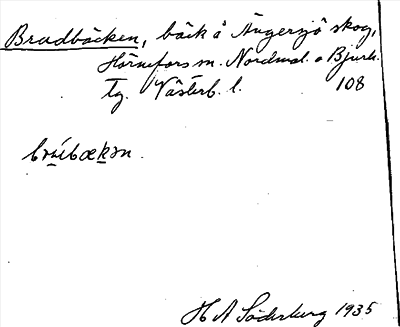 Bradbäcken, bäck å Ängersjö skog,
Hörnefors sn. Nordmal. o Bjurh.
tg. Västerb. l. 108
bækən.
H A Söderberg 1935